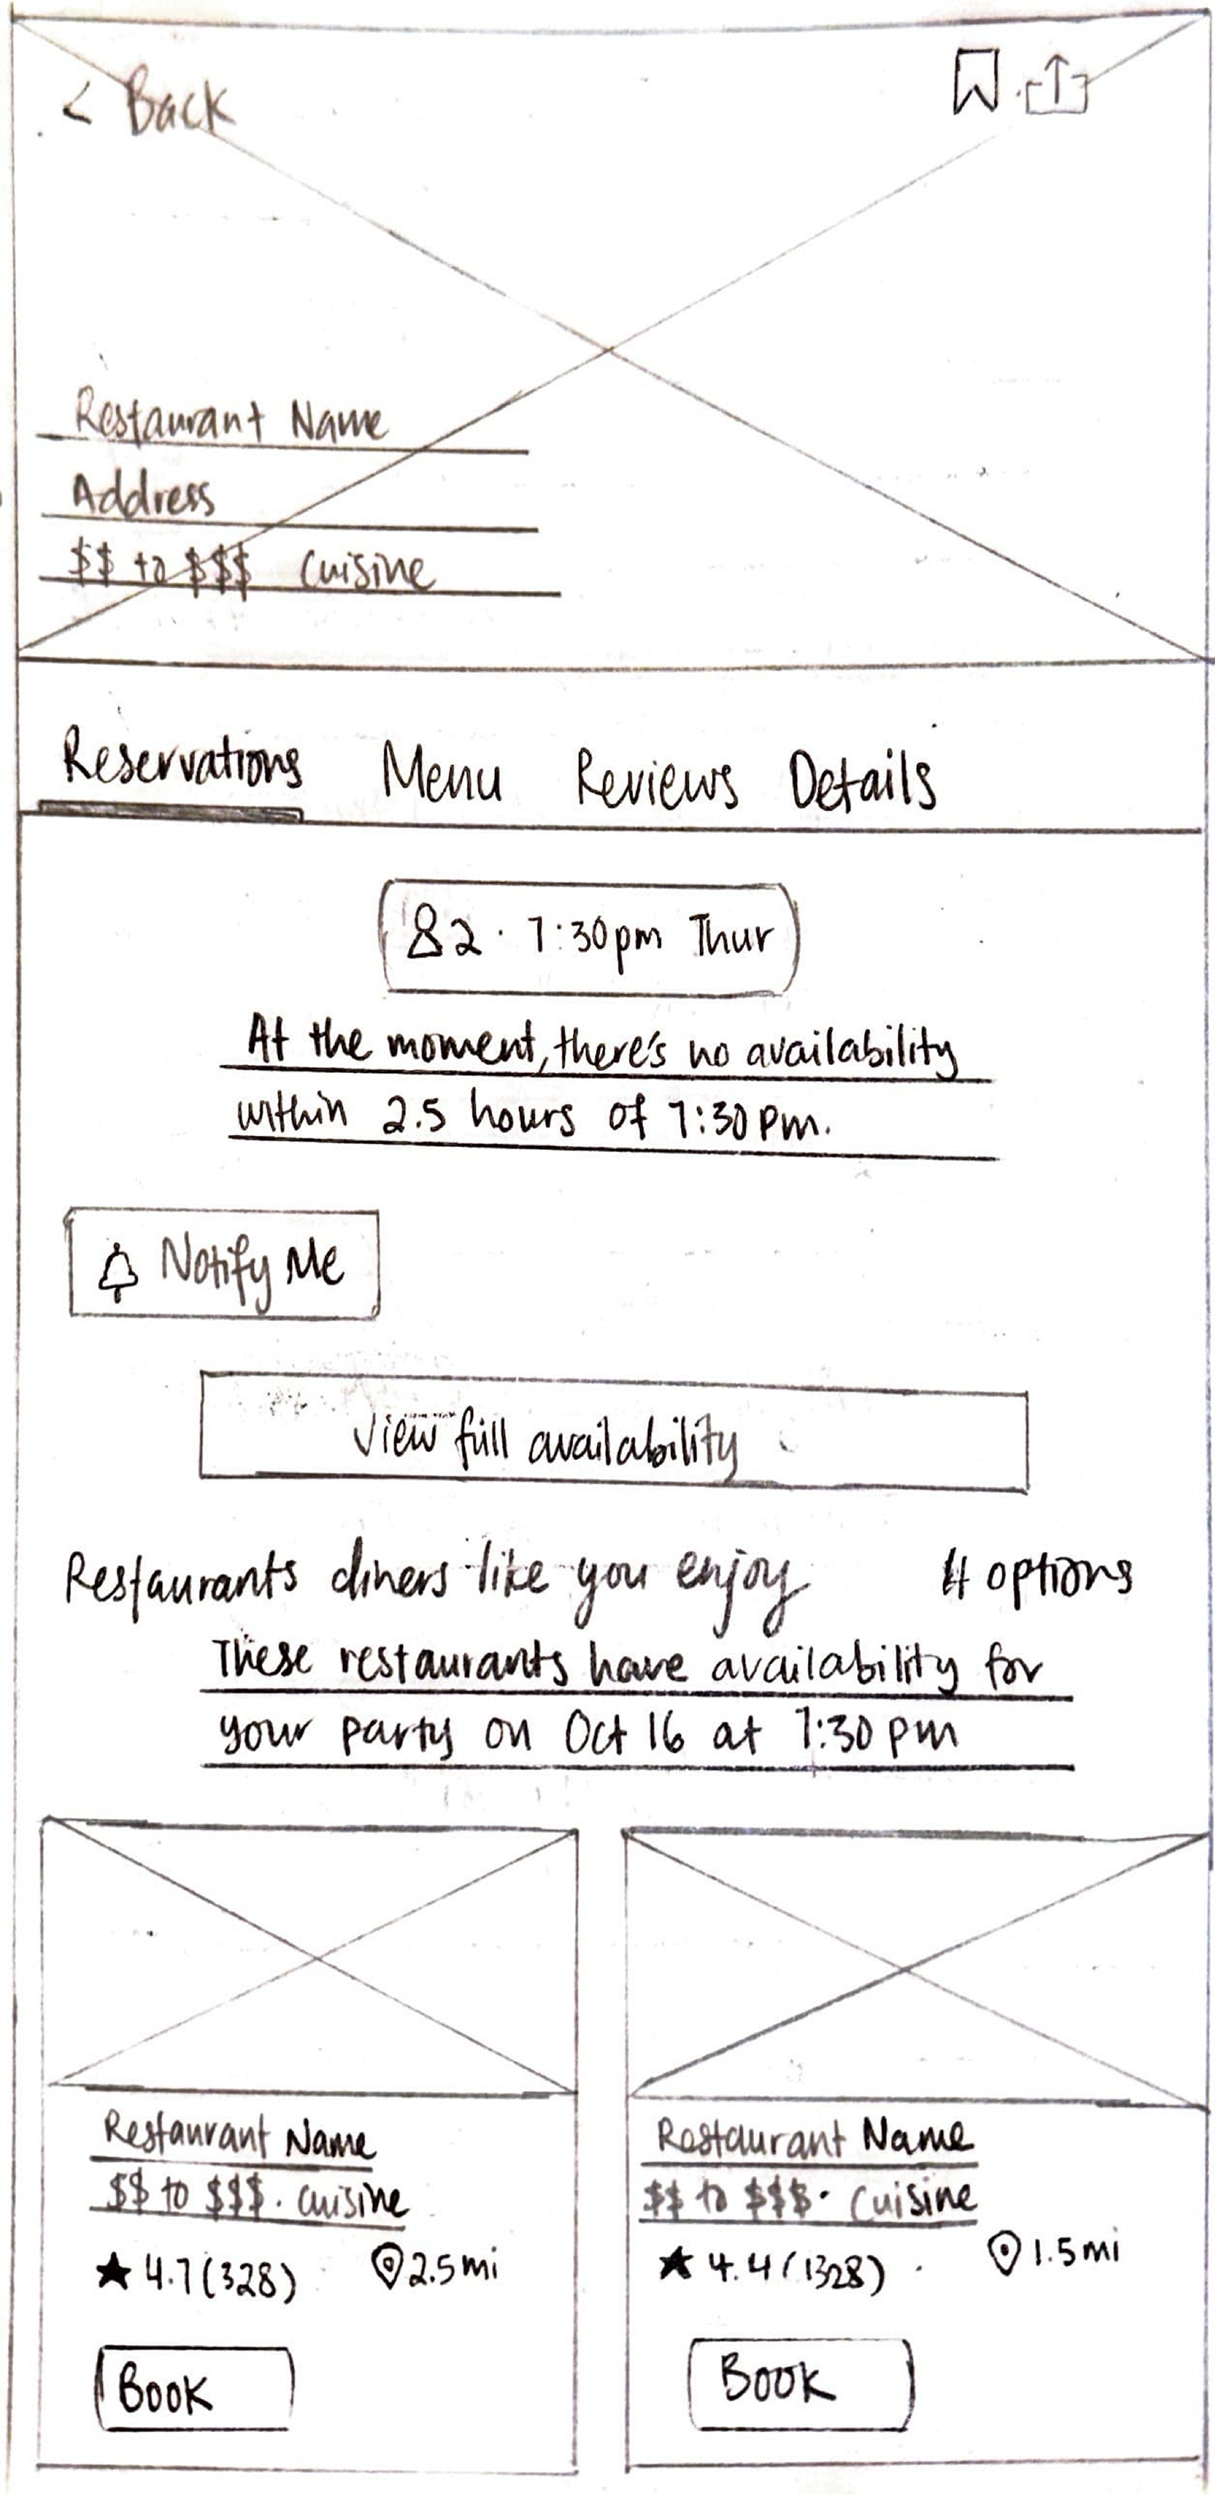 < Back
Restaurant Name
Address
$$ to $$$ Cuisine
Reservations Menu Reviews Details
2 · 7:30pm Thur
At the moment, there's no availability
within 2.5 hours of 7:30pm.
Notify Me
View full availability
Restaurants diners like you enjoy 4 options
These restaurants have availability for
your party on Oct 16 at 7:30pm
Restaurant Name
$$ to $$$ · cuisine
★ 4.7 (328) 2.5mi
Book
Restaurant Name
$$ to $$$ · Cuisine
★ 4.4 (1328) 1.5mi
Book